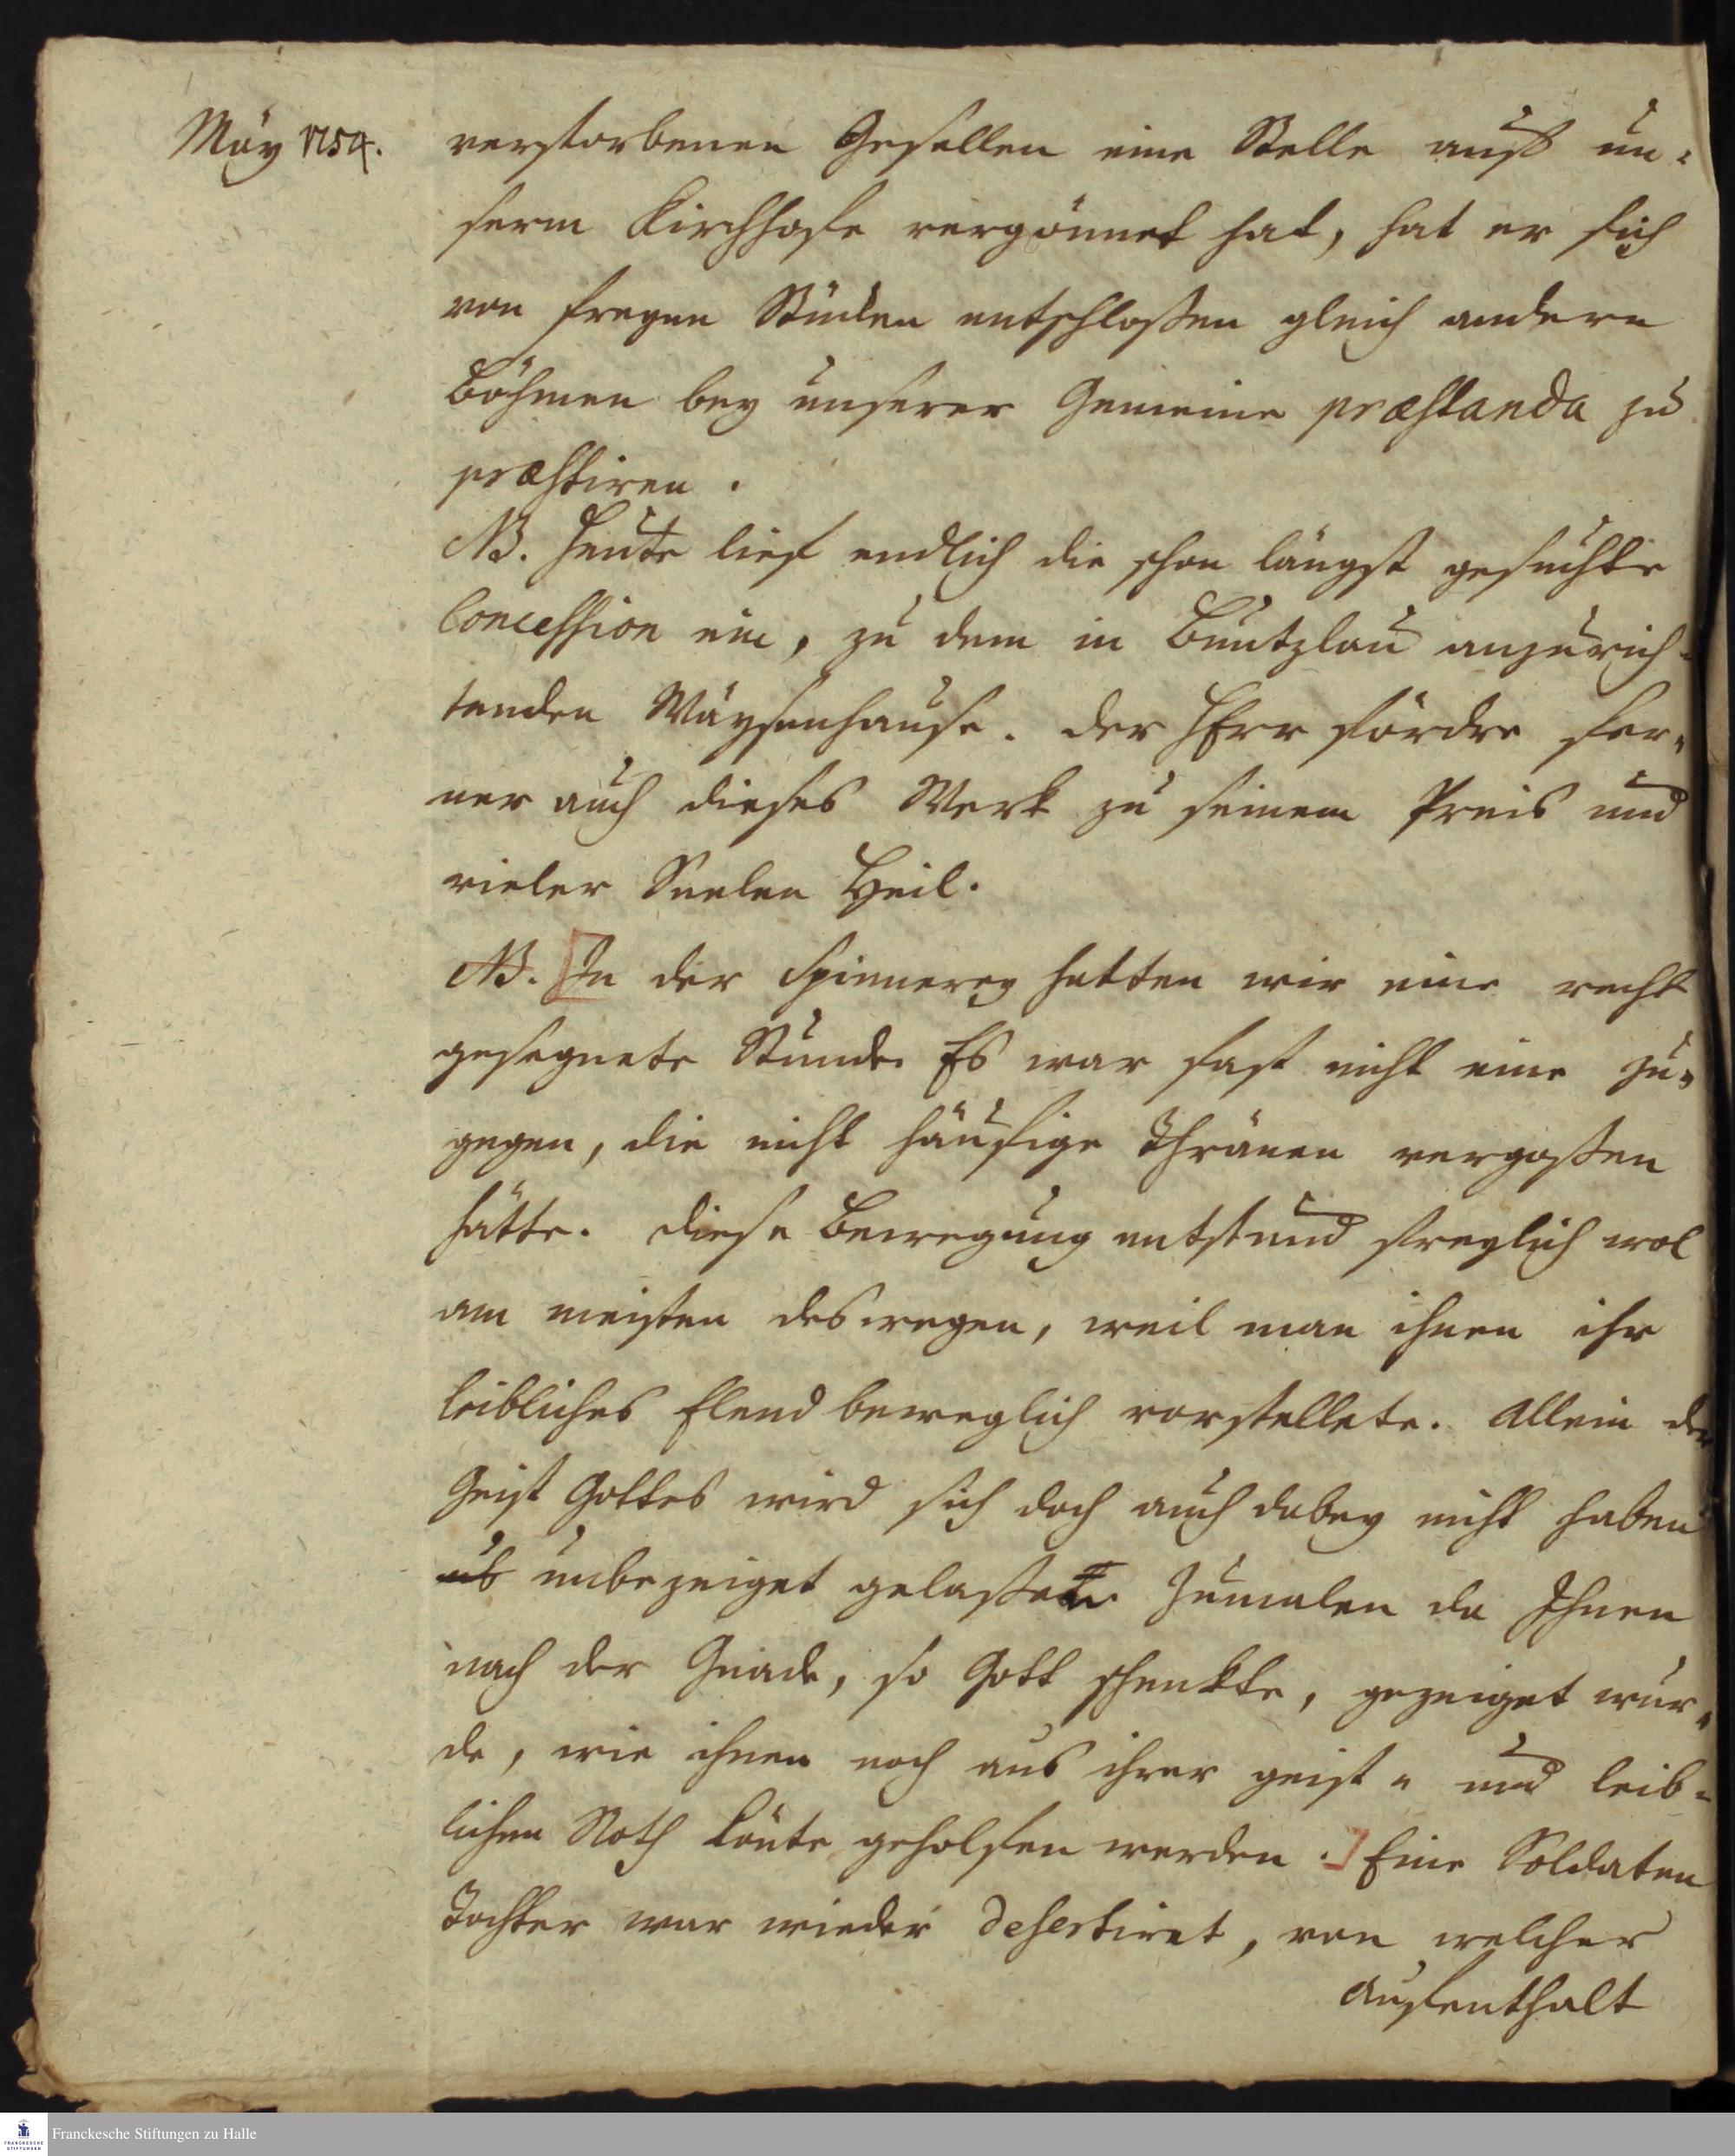 May 1754.
verstorbenen Gesellen eine Stelle auf un-
serm Kirchhofe vergönnet hat, hat er sich
von freyen Stücken entschloßen gleich andern
Böhmen bey unserer Gemeine præstanda zu
præstiren.
NB. Heute lief endlich die schon längst gesuchte
Concession ein, zu dem in Buntzlau anzurich-
tenden Wäysenhause. der HErr fördre fer-
ner auch dieses Werk zu seinem Preis und
vieler Seelen Heil.
NB. In der Spinnerey hatten wir eine recht
gesegnete Stunde. Es war fast nicht eine zu-
gegen, die nicht häufige Thränen vergoßen
hätte. Diese Bewegung entstund freylich wol
am meisten deswegen, weil man ihnen ihr
leibliches Elend beweglich vorstellete. Allein der
Geist Gottes wird sich doch auch dabey nicht haben
unbezeiget gelaßen. Zumalen da Ihnen
nach der Gnade, so Gott schenkte, gezeiget wur-
de, wie ihnen noch aus ihrer geist- und leib-
lichen Noth könte geholfen werden. Eine Soldaten
Tochter war wieder desertiret, von welcher
Aufenthalt
Franckesche Stiftungen zu Halle